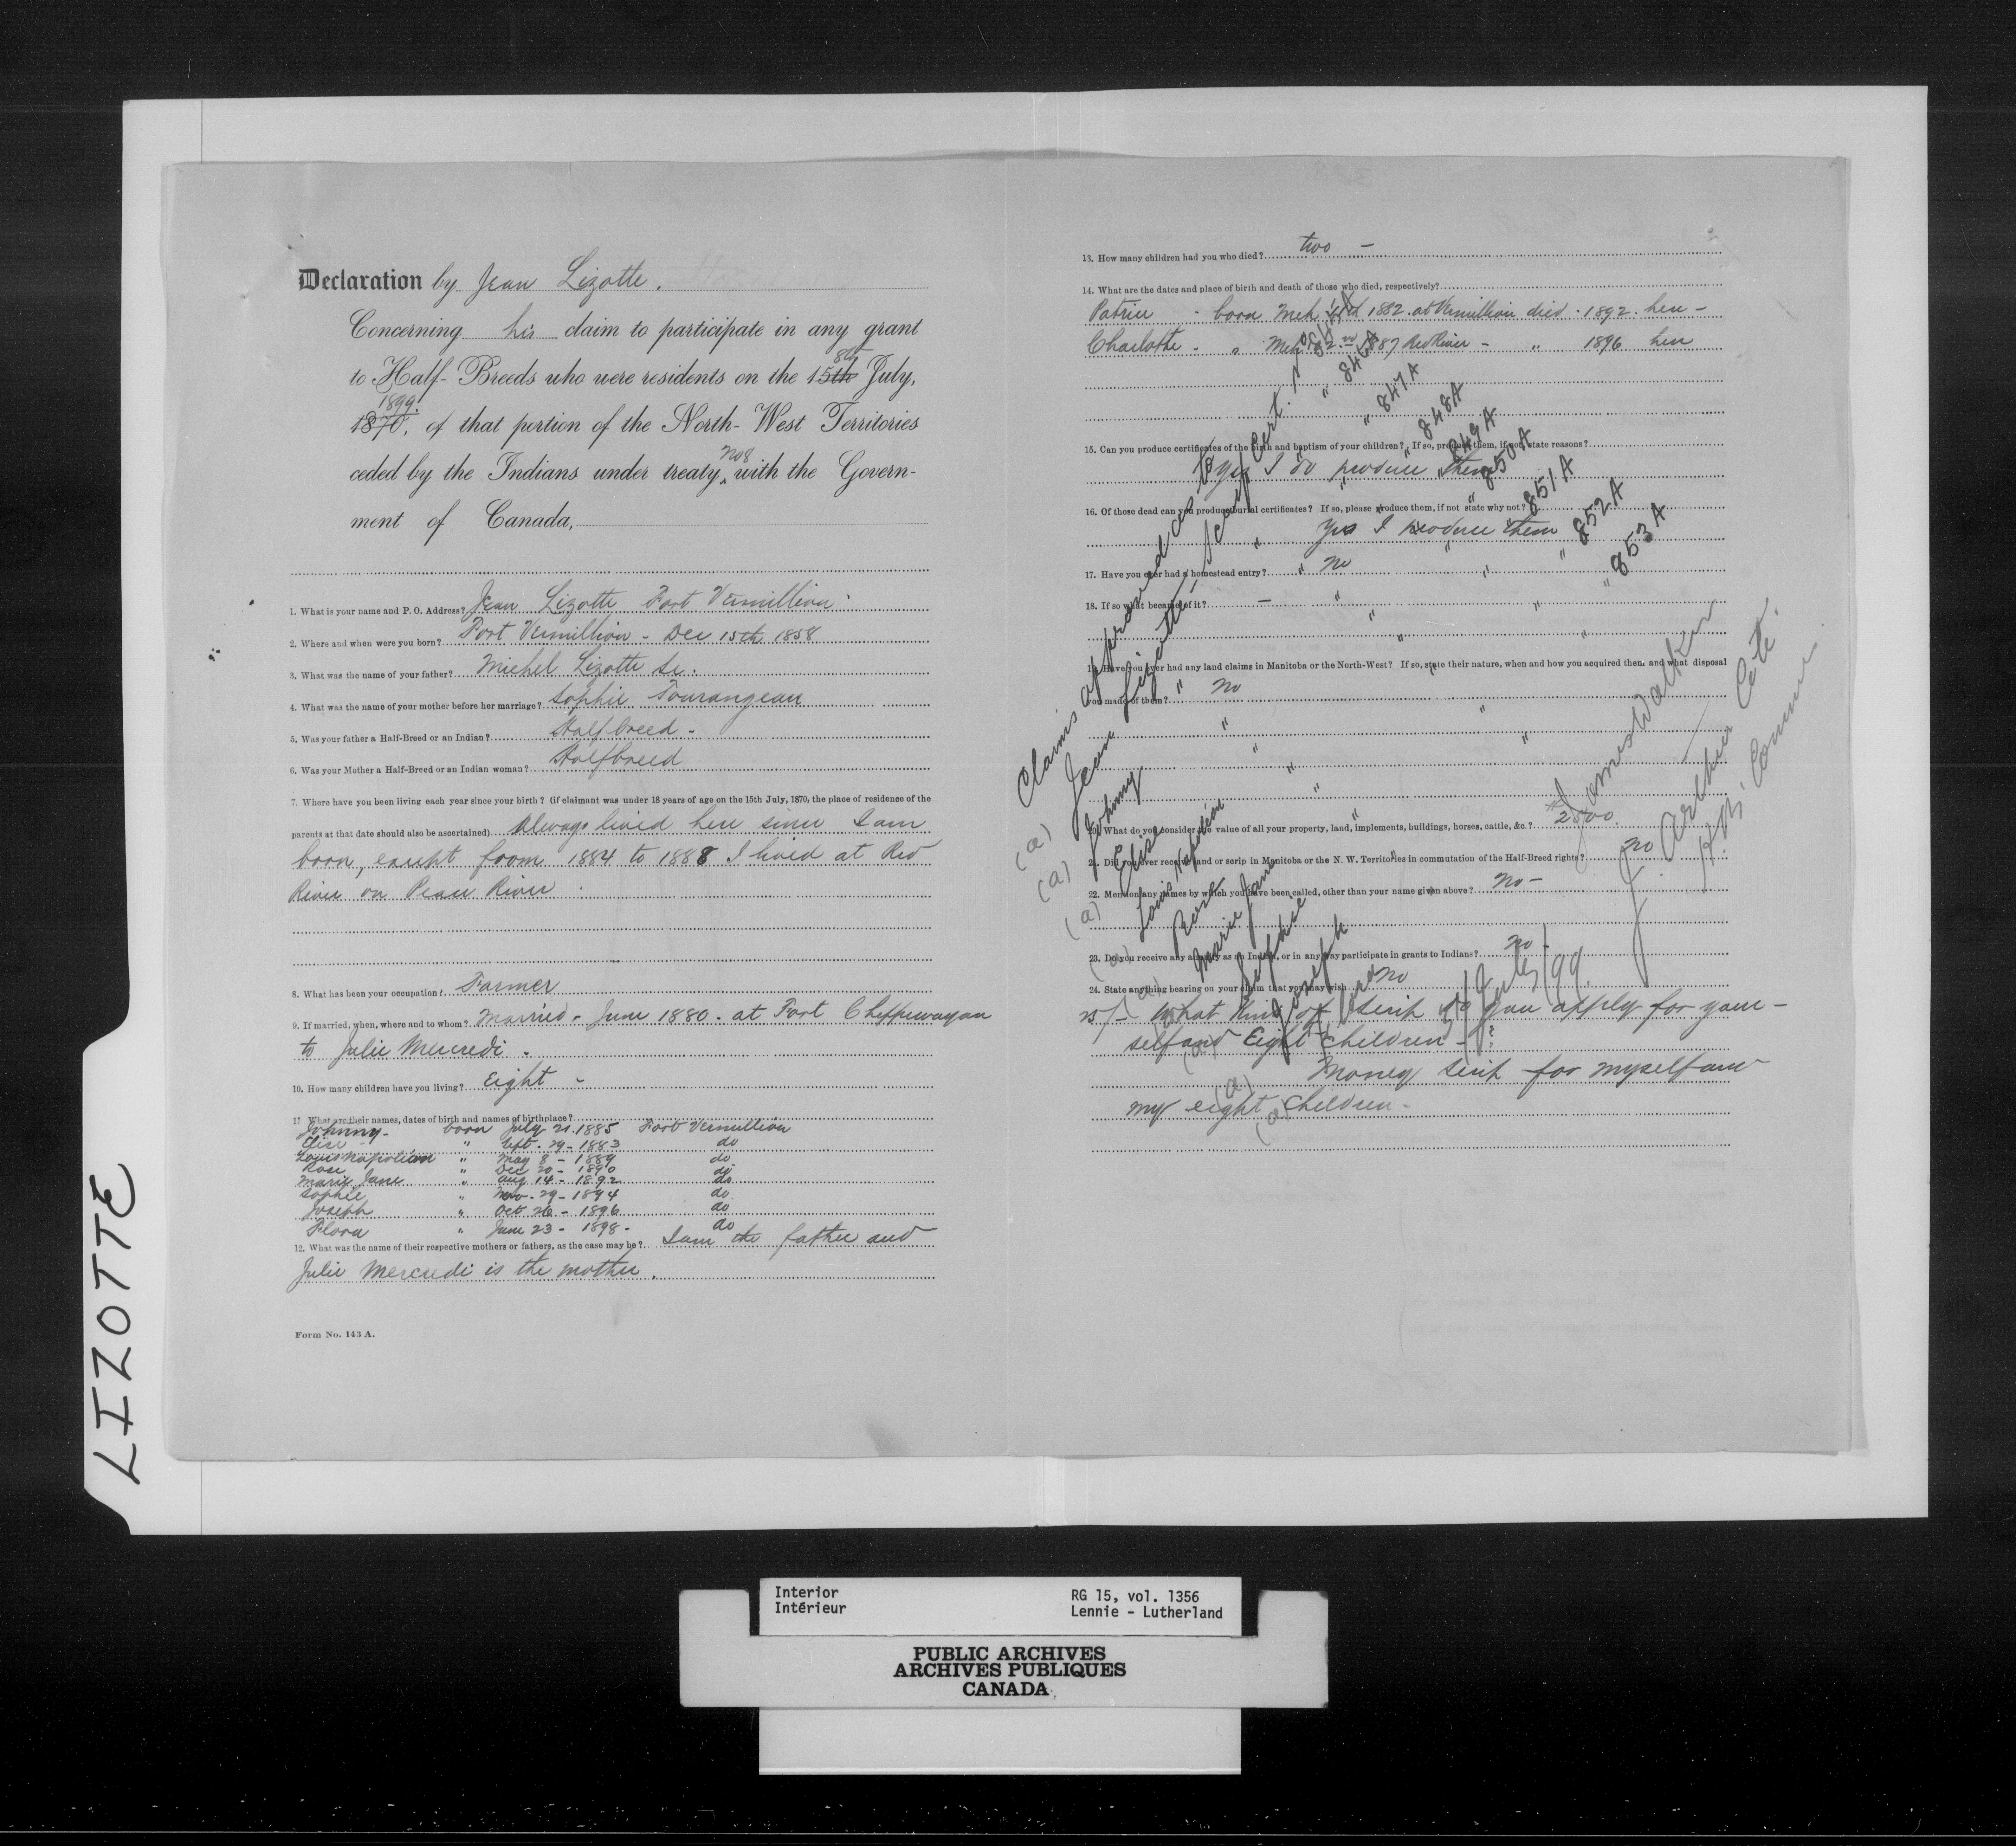 Declaration by Jean Lizotte.
Concerning his claim to participate in any grant
8th
to Half-Breeds who were residents on the 15th July,
1899.
1870, of that portion of the North-West Territories
No 8
ceded by the Indians under treaty, with the Govern-
ment of Canada,
1. What is your name and P. O. Address? Jean Lizotte Fort Vermillion
2. Where and when were you born? Fort Vermillion - Dec 15th 1858
3. What was the name of your father? Michel Lizotte Sr.
4. What was the name of your mother before her marriage? Sophie Tourangeau
5. Was your father a Half-Breed or an Indian? Halfbreed -
6. Was your Mother a Half-Breed or an Indian woman? Halfbreed
7. Where have you been living each year since your birth? (if claimant was under 18 years of age on the 15th July, 1870, the place of residence of the
parents at that date should also be ascertained) Always lived here since I am
born, except from 1884 to 1888 I lived at Red
River on Peace River
8. What has been your occupation? Farmer
9. If married, when, where and to whom? Married - June 1880 - at Fort Chippewayan
to Julie Mercredi .
10. How many children have you living? Eight -
11. What are their names, dates of birth and names of birthplace?
Johnny - born July 21. 1885 Fort Vermillion
Elise - " Sept. 29 - 1883 do
Louis Napoléon " May 8 - 1889 do
Rose " Dec 20 - 1890 do
Marie Jane " Aug 14 - 1892 do
Sophie " Nov. 29 - 1894 do
Joseph " Oct 26 - 1896 do
Flora " June 23 - 1898 - do
12. What was the name of their respective mothers or fathers, as the case may be? I am the father and
Julie Mercredi is the mother.
Form No. 143 A.
13. How many children had you who died? two -
14. What are the dates and place of birth and death of those who died, respectively?
born Mch 1882 at Vermillion died - 1892 here -
Charlotte - " Mch 2nd 1887 Red River - " 1896 here
15. Can you produce certificates of the birth and baptism of your children? If so, produce them, if not, state reasons?
Yes I do produce them
16. Of those dead can you produce burial certificates? If so, please produce them, if not state why not?
Yes I produce them
17. Have you ever had a homestead entry? No
18. If so what became of it? -
19. Have you ever had any land claims in Manitoba or the North-West? If so, state their nature, when and how you acquired them and what disposal
you made of them? No
20. What do you consider the value of all your property, land, implements, buildings, horses, cattle, &c.? $2500.
21. Did you ever receive land or scrip in Manitoba or the N. W. Territories in commutation of the Half-Breed rights? no
22. Mention any names by which you have been called, other than your name given above? No -
23. Do you receive any annuity as an Indian, or in any way participate in grants to Indians? no -
24. State anything bearing on your claim that you may wish No
25/- What kind of Scrip do you apply for your-
self and Eight children - ?
Money Scrip for myself and
my eight children -
Claims approved
(a) Jean Lizotte, Scrip Cert. No 845A
(a) Johnny " " 846A
(a) Elise " " 847A
(a) Louis Napoléon " " 848A
(a) Rose " " 849A
(a) Marie Jane " " 850A
(a) Sophie " " 851A
(a) Joseph " " 852A
(a) Flora " " 853A
James Walker
J. Arthur Coté
H. B. Comrs.
31 July/99
LIZOTTE
Interior
Intérieur
RG 15, vol. 1356
Lennie - Lutherland
PUBLIC ARCHIVES
ARCHIVES PUBLIQUES
CANADA